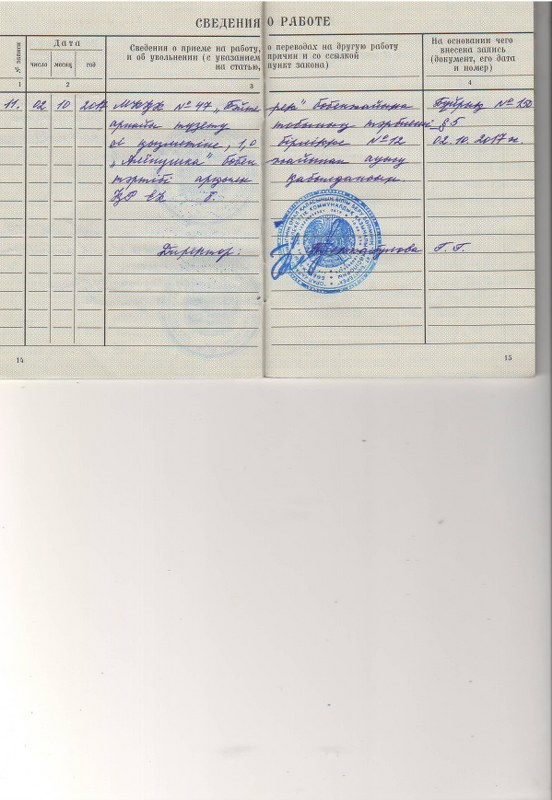 СВЕДЕНИЯ О РАБОТЕ
№ записи
Дата
число месяц год
Сведения о приеме на работу, о переводах на другую работу
и об увольнении (с указанием причин и со ссылкой
на статью, пункт закона)
На основании чего
внесена запись
(документ, его дата
и номер)
1 2 3 4
11. 02 10 2017 МКҚК № 47 „Бәйте рек" бөбекжайына Бұйрық №
арнайы түзету тобының тәрбиешісі § 5
қызметіне, 1,0 бірлікке №12 02.10.2017 ж.
бөбек жайынан ауысу
тәртібі арқылы қабылдансын
ҚР ЕК
Директор: Г. Г.
14 15